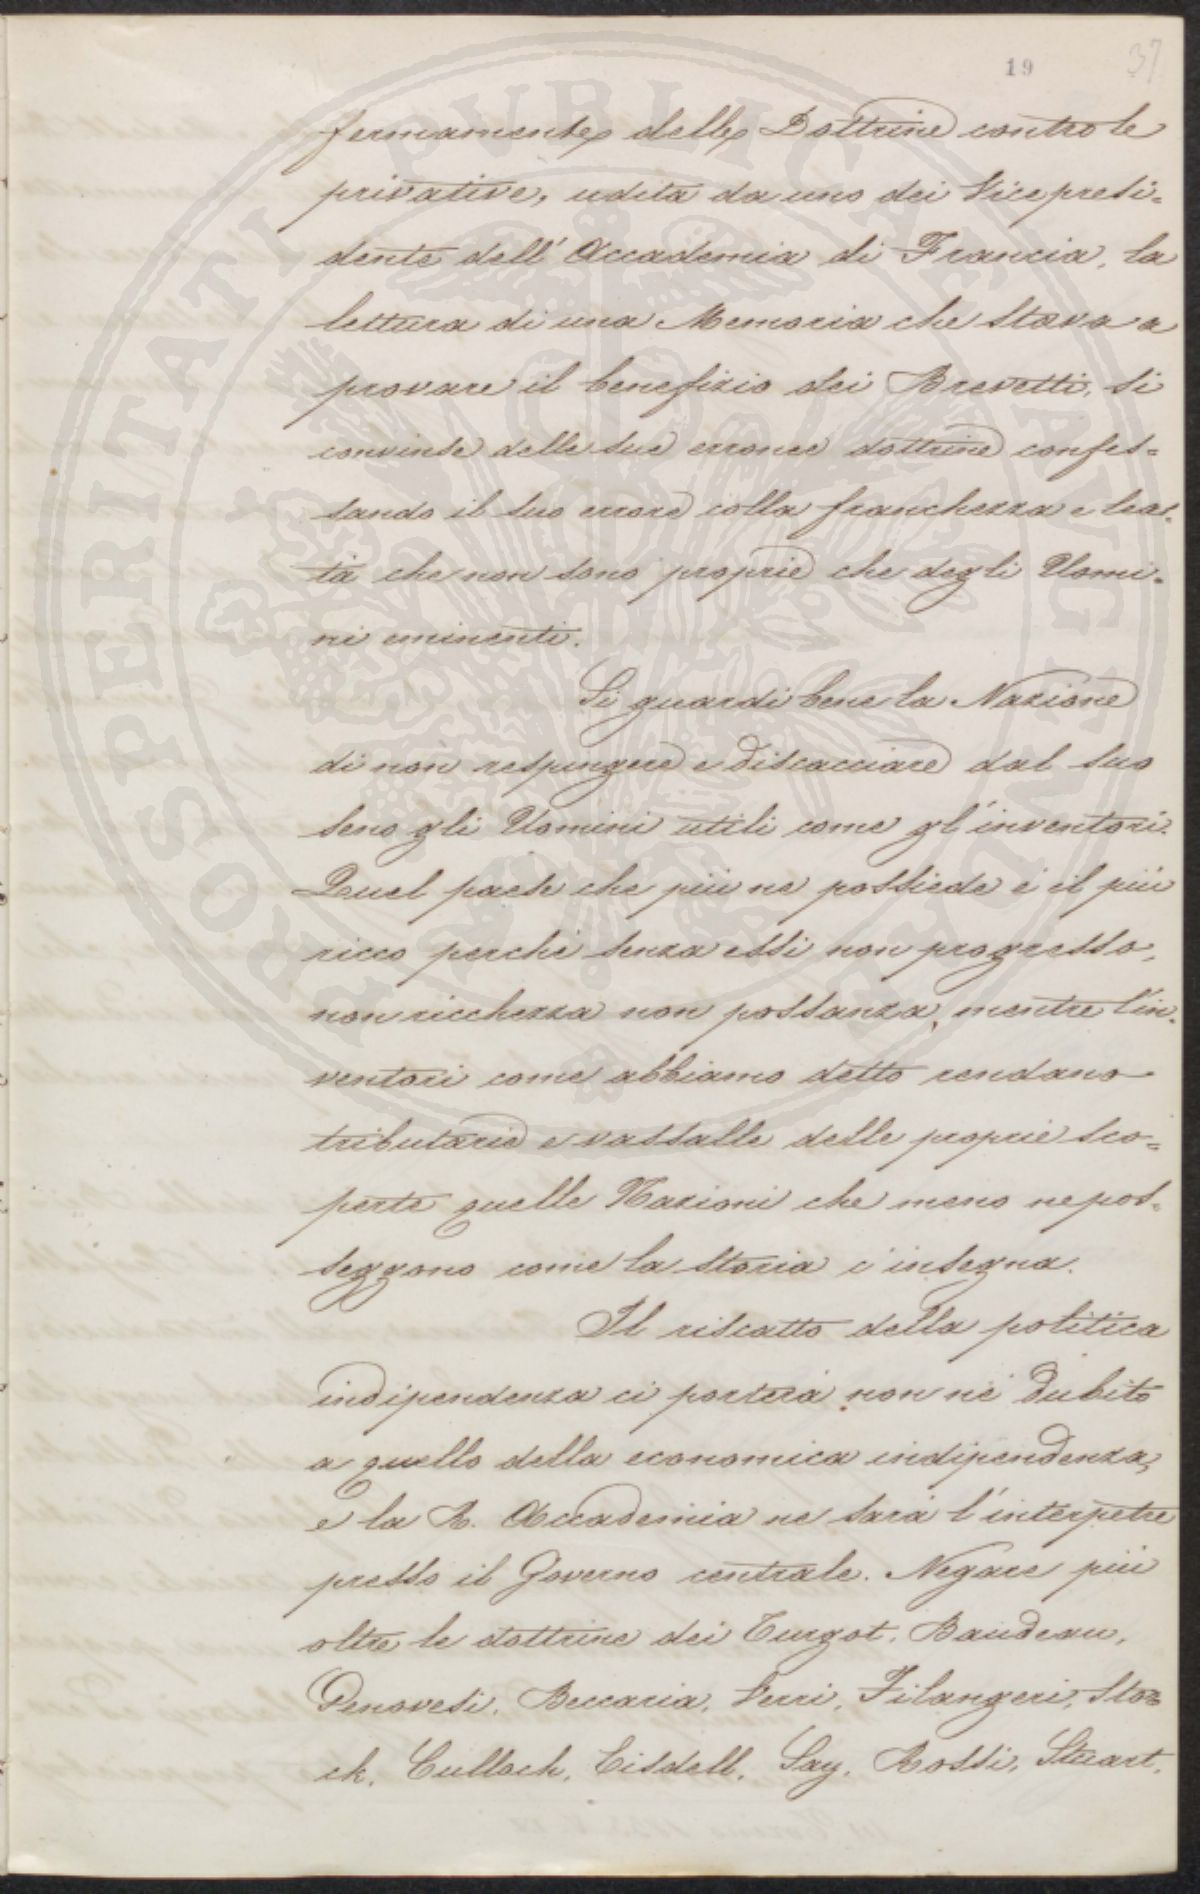 19 37
fermamente delle Dottrine contro le
privative, udita da uno dei Vice presi=
dente dell' Accademia di Francia, la
lettura di una Memoria che stava a
provare il benefizio dei Brevetti, si
convinse delle sue erronee dottrine confes=
sando il suo errore colla franchezza e leal=
tà che non sono proprie che degli Uomi=
ni eminenti.
Si guardi bene la Nazione
di non respingere e discacciare dal suo
seno gli Uomini utili come gl'inventori.
Quel paese che più ne possiede è il più
ricco perchè senza essi non progresso,
non ricchezza non possanza, mentre l'in=
ventori come abbiamo detto rendano
tributarie e vassalle delle proprie sco=
perte quelle Nazioni che meno ne pos=
seggono come la storia c'insegna.
Il riscatto della politica
indipendenza ci porterà non nè dubito
a quello della economica indipendenza,
e la R. Accademia ne sarà l'interpetre
presso il Governo centrale. Negare più
oltre le dottrine dei Turgot, Baudeau,
Genovesi, Beccaria, Verri, Filangeri, Stor=
ck, Culloch, Tisdell, Say, Rossi, Stuart,
PROSPERITATI PVBLICAE AVGENDAE